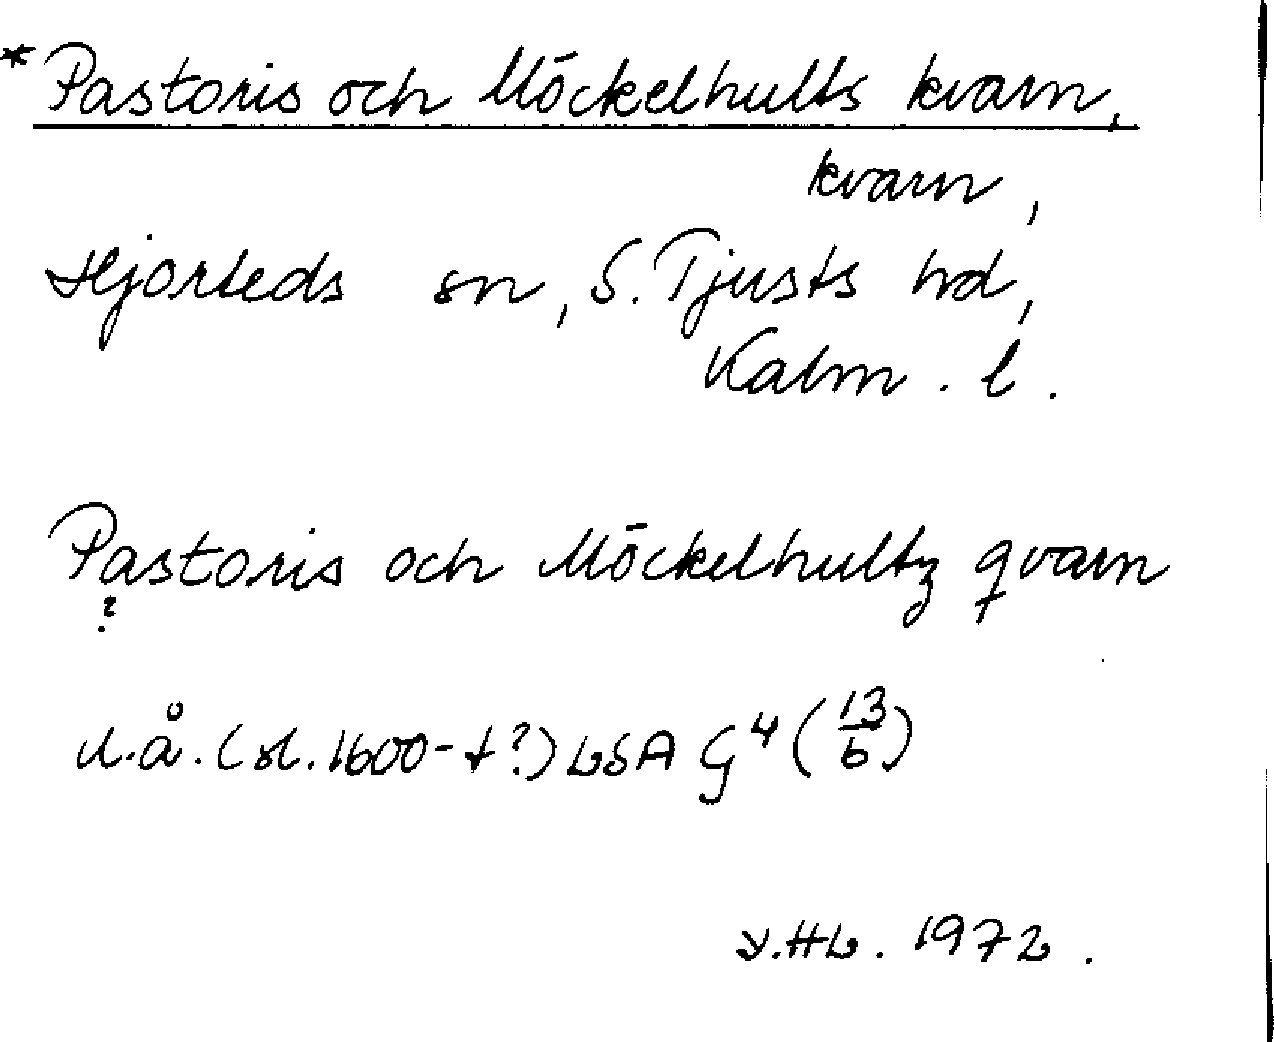 * Pastoris och Möckelhults kvarn,
kvarn,
Hjorteds sn, S. Tjusts hd,
Kalm. l.
Pastoris och Möckelhultz qvarn
?
u.å. (sl. 1600-t?) LSA G⁴ (13/6)
V.Hb. 1972.